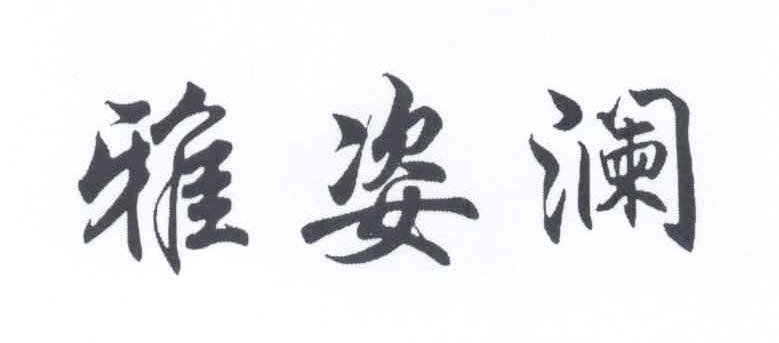 雅姿澜